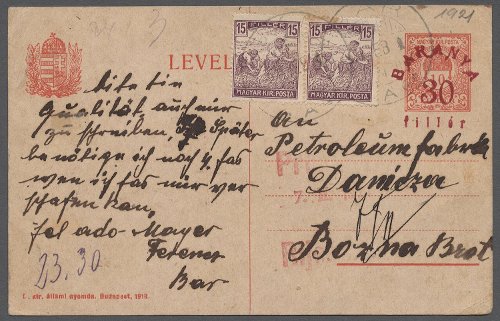 1921
LEVEL
15 FILLÉR 15
MAGYAR KIR. POSTA
15 FILLÉR 15
MAGYAR KIR. POSTA
BARANYA
30
fillér
bite ein
Qualität auch mir
zu schreiben, Später
benötige ich noch 4 fas
wen ich fas mir ver
schafen kan,
Mayer
Ferenc
Bar
23.30
An
Petroleumfabrik
Danicza
Bozna Brot
állami nyomda. Budapest, 1918.